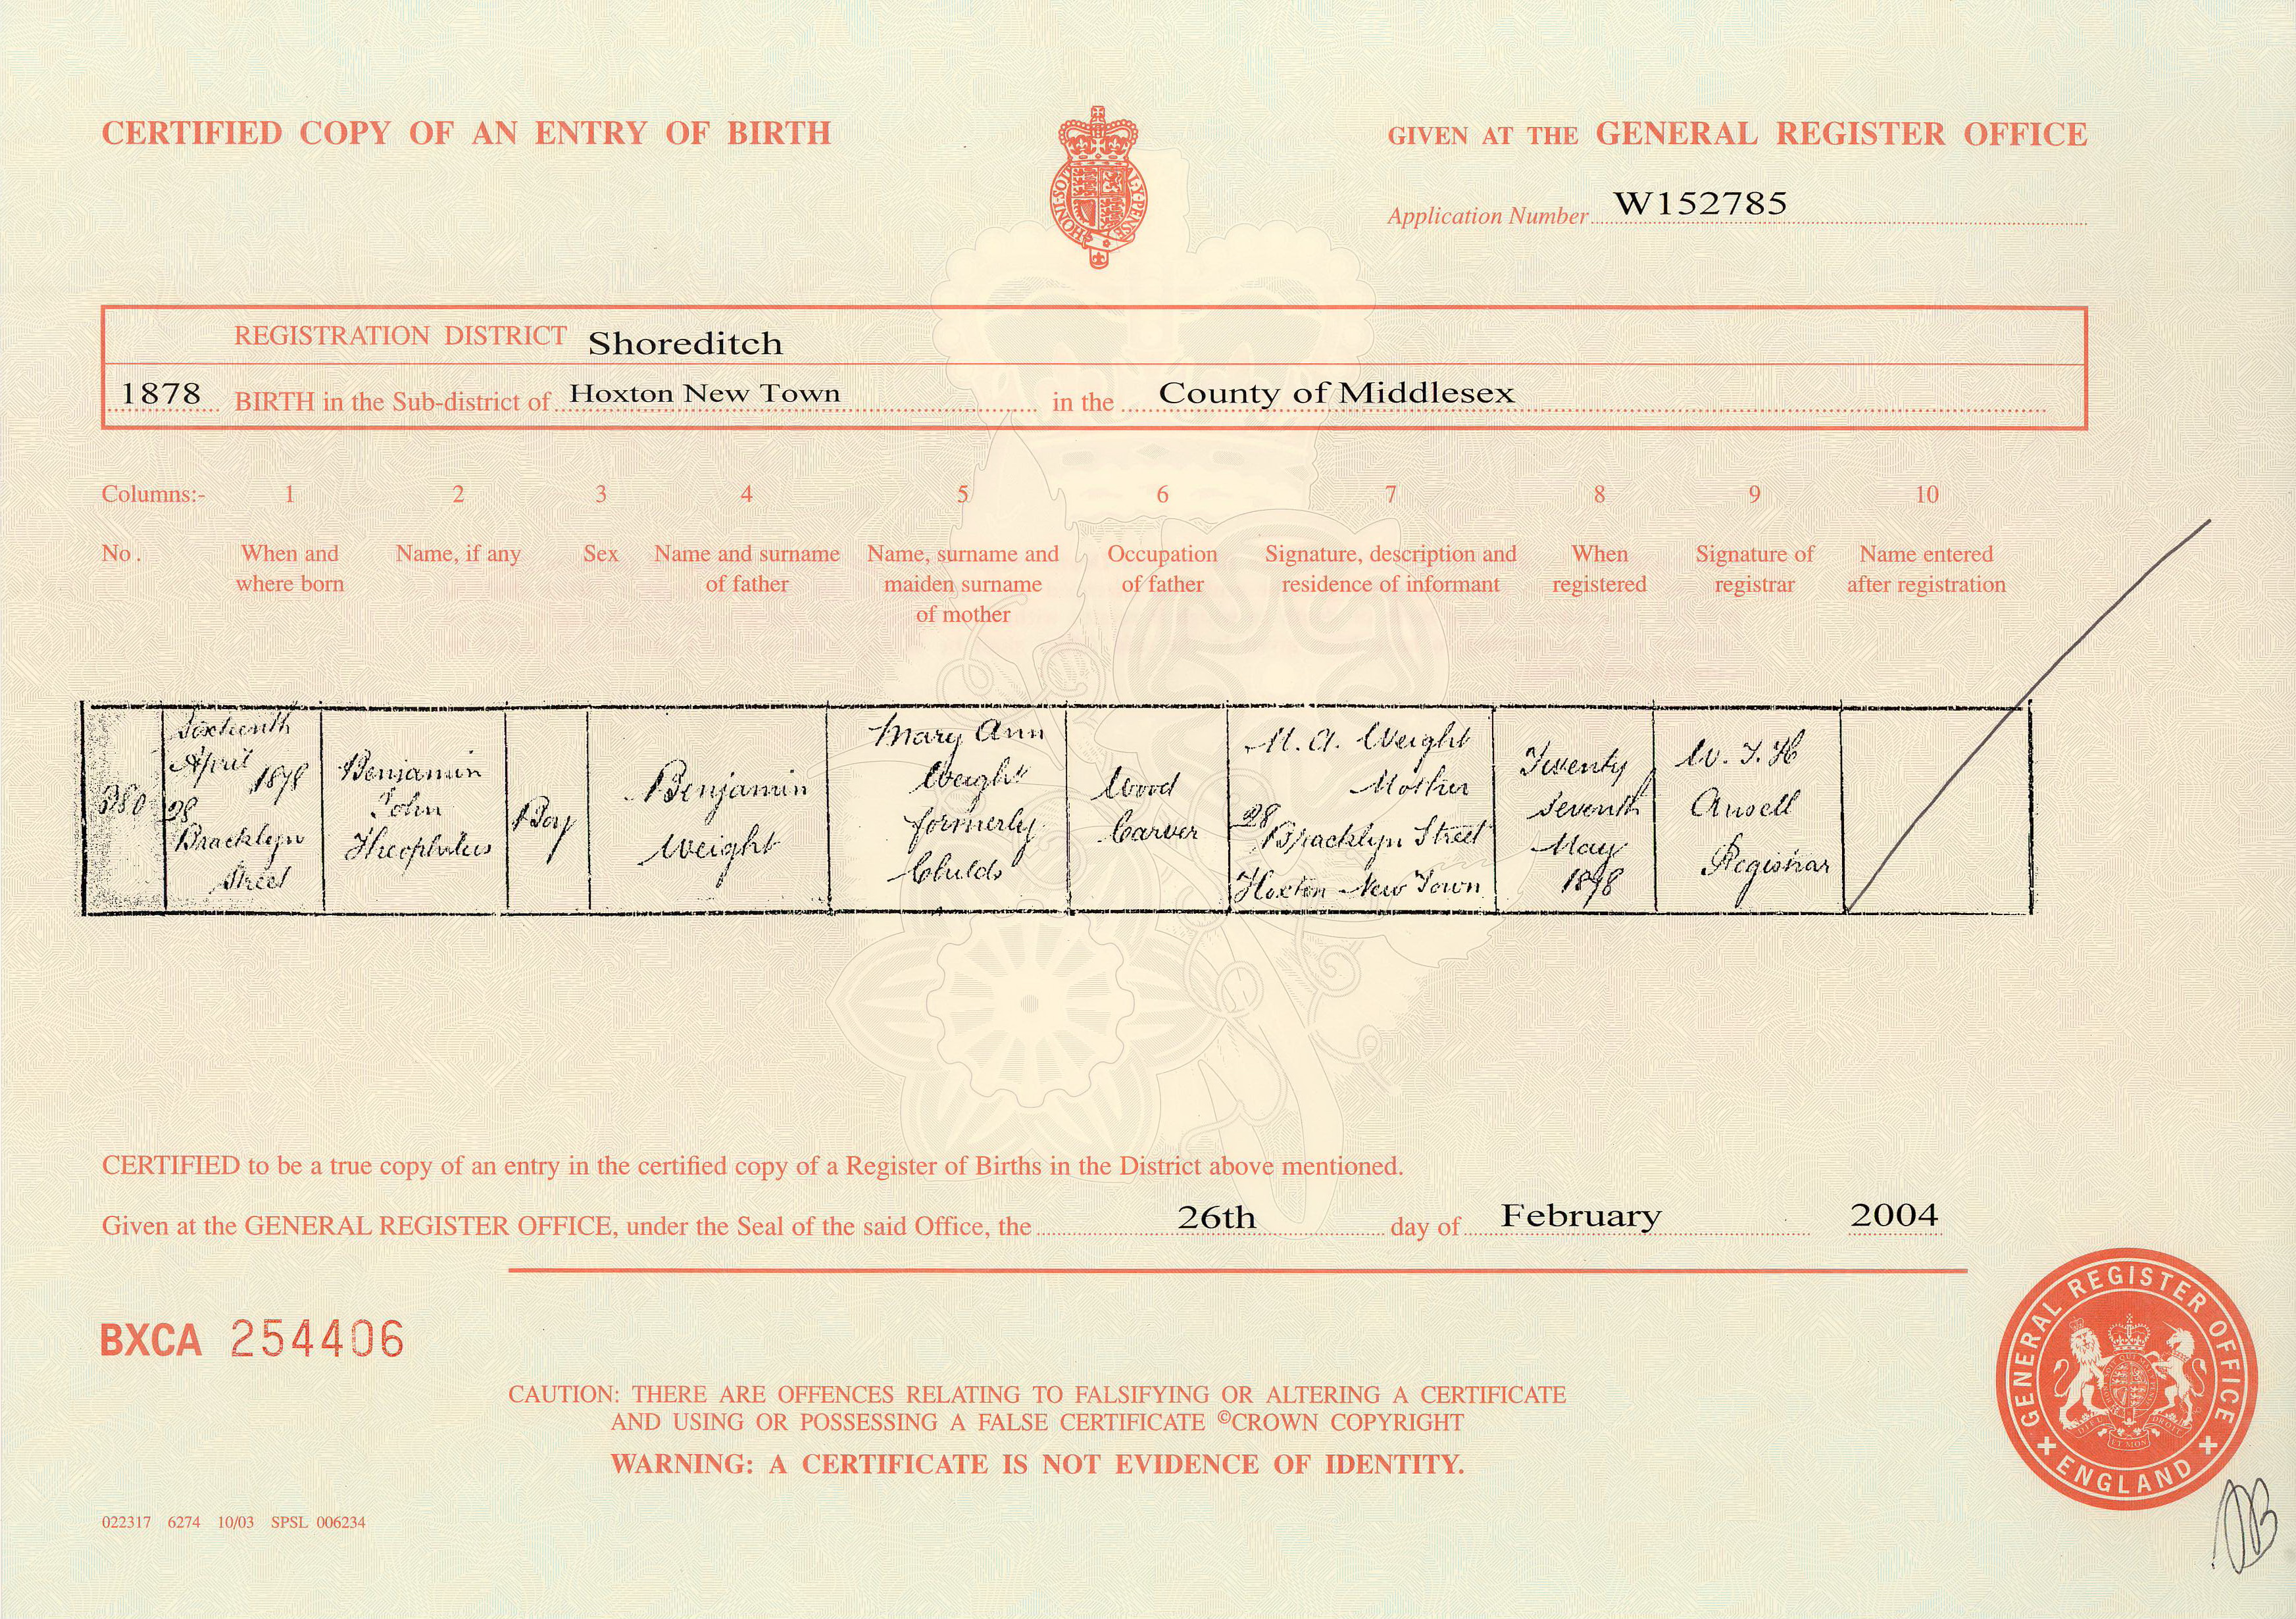 CERTIFIED COPY OF AN ENTRY OF BIRTH
GIVEN AT THE GENERAL REGISTER OFFICE
HONI SOIT QUI MAL Y PENSE
Application Number W152785
REGISTRATION DISTRICT Shoreditch
1878 BIRTH in the Sub-district of Hoxton New Town in the County of Middlesex
Columns:- 1 2 3 4 5 6 7 8 9 10
No. When and where born Name, if any Sex Name and surname of father Name, surname and maiden surname of mother Occupation of father Signature, description and residence of informant When registered Signature of registrar Name entered after registration
380
Sixteenth
April
1878
28
Bracklyn
Street
Benjamin
John
Theophilus
Boy
Benjamin
Weight
Mary Ann
Weight
formerly
Childs
Wood
Carver
M. A. Weight
Mother
28
Bracklyn Street
Hoxton New Town
Twenty
Seventh
May
1878
W. J. H
Ansell
Registrar
CERTIFIED to be a true copy of an entry in the certified copy of a Register of Births in the District above mentioned.
Given at the GENERAL REGISTER OFFICE, under the Seal of the said Office, the 26th day of February 2004
BXCA 254406
GENERAL REGISTER OFFICE
ENGLAND
CAUTION: THERE ARE OFFENCES RELATING TO FALSIFYING OR ALTERING A CERTIFICATE
AND USING OR POSSESSING A FALSE CERTIFICATE ©CROWN COPYRIGHT
WARNING: A CERTIFICATE IS NOT EVIDENCE OF IDENTITY.
022317 6274 10/03 SPSL 006234